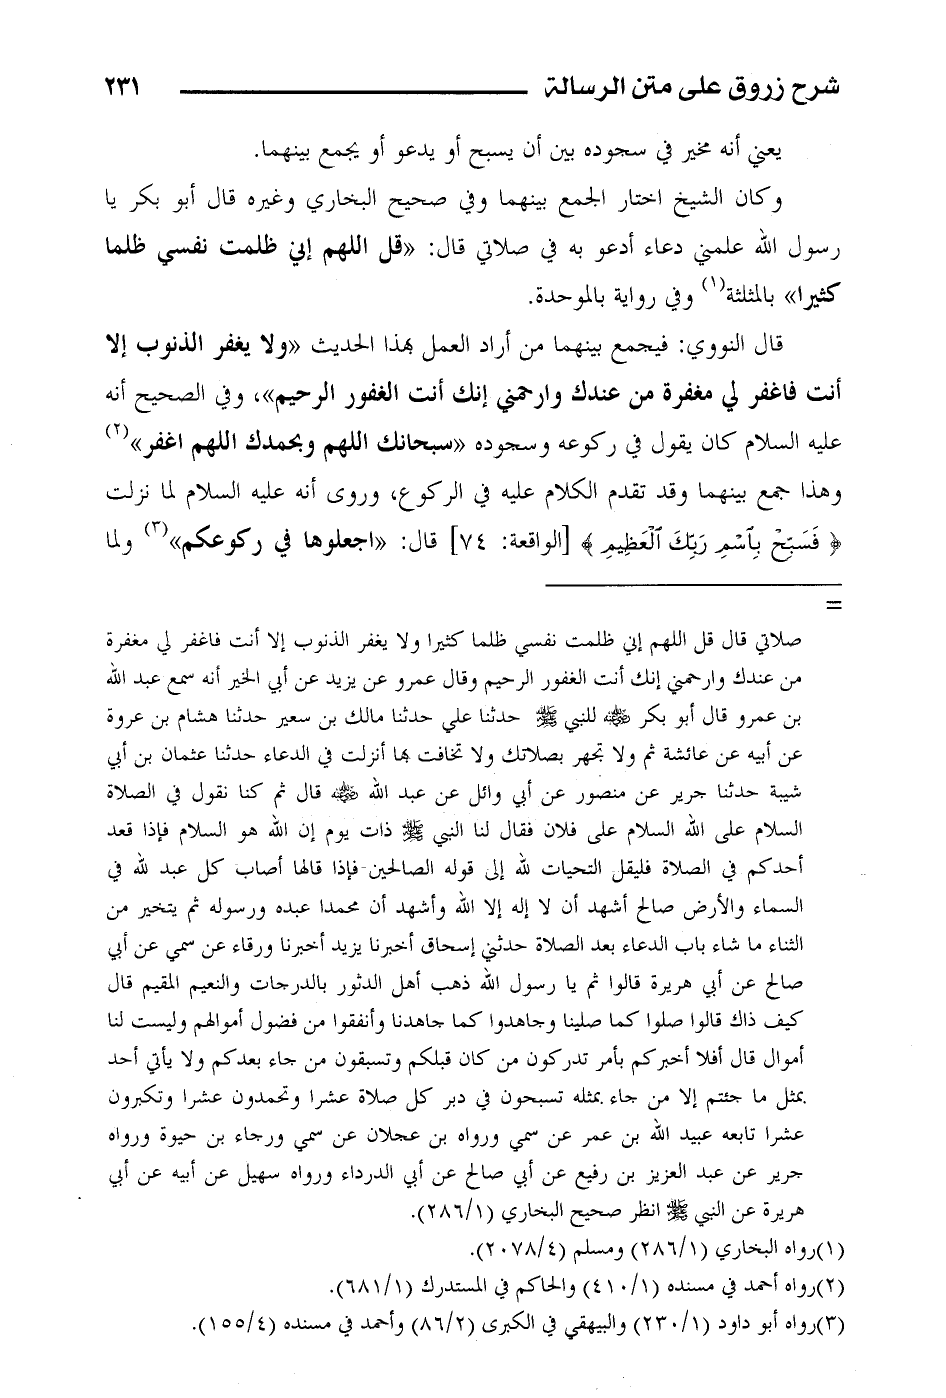 شرح زروق على متن الرسالة ٢٣١
يعني أنه مخير في سجوده بين أن يسبح أو يدعو أو يجمع بينهما.
وكان الشيخ اختار الجمع بينهما وفي صحيح البخاري وغيره قال أبو بكر يا
رسول الله علمني دعاء أدعو به في صلاتي قال: «قل اللهم إني ظلمت نفسي ظلما
كثيرا» بالمثلثة(١) وفي رواية بالموحدة.
قال النووي: فيجمع بينهما من أراد العمل بهذا الحديث «ولا يغفر الذنوب إلا
أنت فاغفر لي مغفرة من عندك وارحمني إنك أنت الغفور الرحيم»، وفي الصحيح أنه
عليه السلام كان يقول في ركوعه وسجوده «سبحانك اللهم وبحمدك اللهم اغفر»(٢)
وهذا جمع بينهما وقد تقدم الكلام عليه في الركوع، وروى أنه عليه السلام لما نزلت
﴿ فَسَبِّحْ بِٱسْمِ رَبِّكَ ٱلْعَظِيمِ ﴾ [الواقعة: ٧٤] قال: «اجعلوها في ركوعكم»(٣) ولما
=
صلاتي قال قل اللهم إني ظلمت نفسي ظلما كثيرا ولا يغفر الذنوب إلا أنت فاغفر لي مغفرة
من عندك وارحمني إنك أنت الغفور الرحيم وقال عمرو عن يزيد عن أبي الخير أنه سمع عبد الله
بن عمرو قال أبو بكر ﵁ للنبي ﷺ حدثنا علي حدثنا مالك بن سعير حدثنا هشام بن عروة
عن أبيه عن عائشة ثم ولا تجهر بصلاتك ولا تخافت بها أنزلت في الدعاء حدثنا عثمان بن أبي
شيبة حدثنا جرير عن منصور عن أبي وائل عن عبد الله ﵁ قال ثم كنا نقول في الصلاة
السلام على الله السلام على فلان فقال لنا النبي ﷺ ذات يوم إن الله هو السلام فإذا قعد
أحدكم في الصلاة فليقل التحيات لله إلى قوله الصالحين فإذا قالها أصاب كل عبد لله في
السماء والأرض صالح أشهد أن لا إله إلا الله وأشهد أن محمدا عبده ورسوله ثم يتخير من
الثناء ما شاء باب الدعاء بعد الصلاة حدثني إسحاق أخبرنا يزيد أخبرنا ورقاء عن سمي عن أبي
صالح عن أبي هريرة قالوا ثم يا رسول الله ذهب أهل الدثور بالدرجات والنعيم المقيم قال
كيف ذاك قالوا صلوا كما صلينا وجاهدوا كما جاهدنا وأنفقوا من فضول أموالهم وليست لنا
أموال قال أفلا أخبركم بأمر تدركون من كان قبلكم وتسبقون من جاء بعدكم ولا يأتي أحد
بمثل ما جئتم إلا من جاء بمثله تسبحون في دبر كل صلاة عشرا وتحمدون عشرا وتكبرون
عشرا تابعه عبيد الله بن عمر عن سمي ورواه بن عجلان عن سمي ورجاء بن حيوة ورواه
جرير عن عبد العزيز بن رفيع عن أبي صالح عن أبي الدرداء ورواه سهيل عن أبيه عن أبي
هريرة عن النبي ﷺ انظر صحيح البخاري (٢٨٦/١).
(١)رواه البخاري (٢٨٦/١) ومسلم (٢٠٧٨/٤).
(٢)رواه أحمد في مسنده (٤١٠/١) والحاكم في المستدرك (٦٨١/١).
(٣)رواه أبو داود (٢٣٠/١) والبيهقي في الكبرى (٨٦/٢) وأحمد في مسنده (١٥٥/٤).